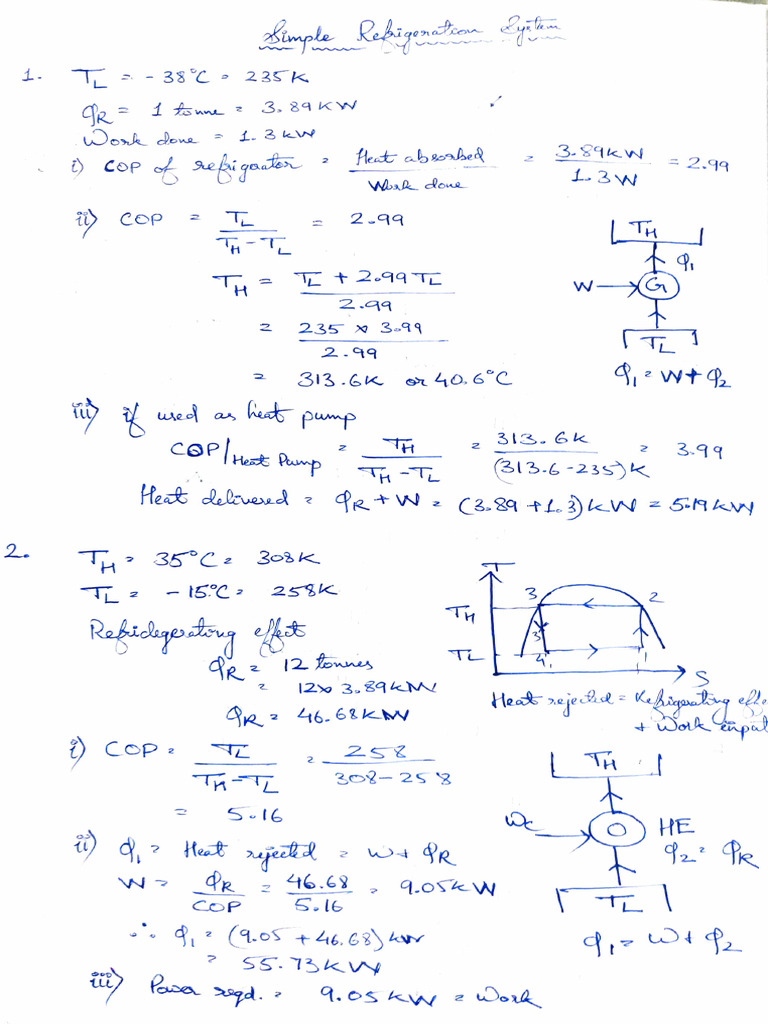 Simple Refrigeration System
1. TL = -38°C = 235K
φR = 1 tonne = 3.89KW
Work done = 1.3KW
i) COP of refrigorator = Heat absorbed / Work done = 3.89KW / 1.3W = 2.99
ii) COP = TL / TH - TL = 2.99
TH = TL + 2.99 TL / 2.99
= 235 × 3.99 / 2.99
= 313.6K or 40.6°C
TH
φ1
W
G
TL
φ1 = W + φ2
iii) if used as heat pump
COP/Heat Pump = TH / TH - TL = 313.6K / (313.6-235)K = 3.99
Heat delivered = φR + W = (3.89 + 1.3)KW = 5.19KW
2. TH = 35°C = 308K
TL = -15°C = 258K
Refridegerating effect
φR = 12 tonnes
= 12 × 3.89KW
φR = 46.68KW
T
3 2
TH
3'
TL
4 1
S
Heat rejected = Refrigerating effe
+ Work input
i) COP = TL / TH - TL = 258 / 308 - 258
= 5.16
ii) φ1 = Heat rejected = W + φR
W = φR / COP = 46.68 / 5.16 = 9.05KW
∴ φ1 = (9.05 + 46.68)KW
= 55.73KW
iii) Power reqd. = 9.05KW = Work
TH
Wc
HE
φ2 = φR
TL
φ1 = W + φ2